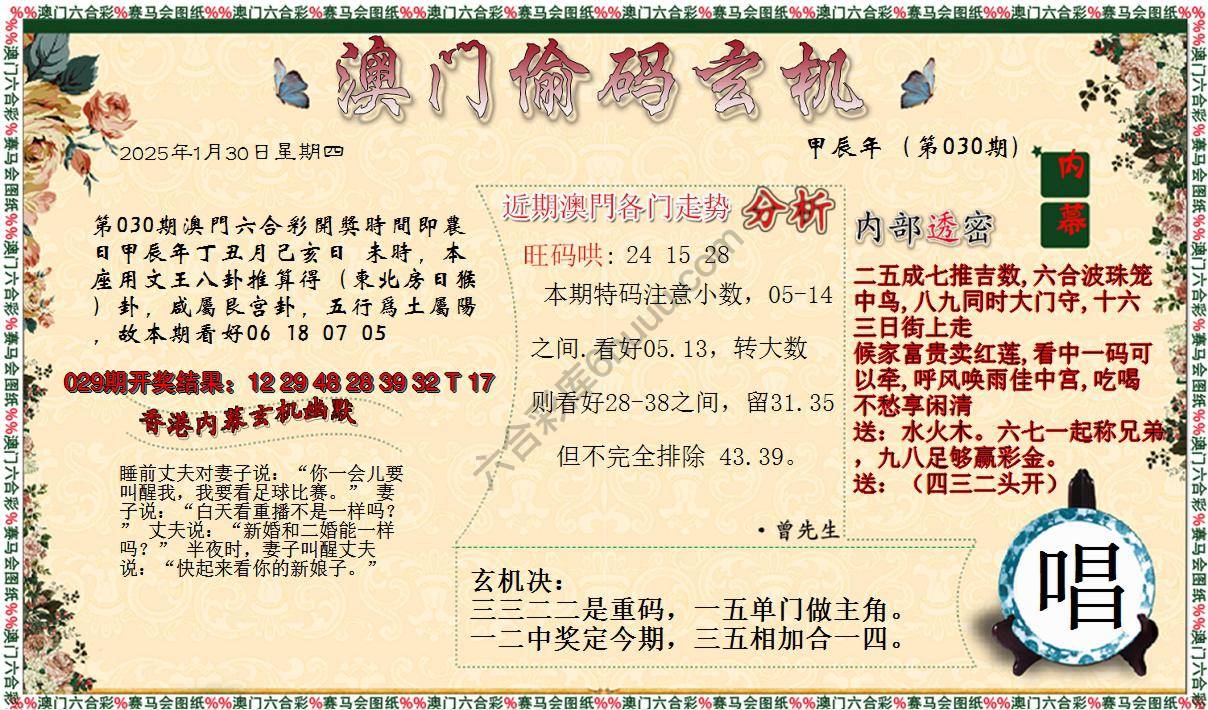 %%澳门六合彩%赛马会图纸%%澳门六合彩%赛马会图纸%%澳门六合彩%赛马会图纸%%澳门六合彩%赛马会图纸%%澳门六合彩%赛马会图纸%%澳门六合彩%赛马会图纸%%
澳门偷码玄机
2025年1月30日星期四
甲辰年（第030期）
内
幕
第030期澳門六合彩開獎時間即農
日甲辰年丁丑月己亥日 未時，本
座用文王八卦推算得（東北房日猴
）卦，咸屬艮宫卦，五行爲土屬陽
，故本期看好06 18 07 05
029期开奖结果：12 29 48 28 39 32 T 17
香港内幕玄机幽默
睡前丈夫对妻子说：“你一会儿要
叫醒我，我要看足球比赛。” 妻
子说：“白天看重播不是一样吗？
” 丈夫说：“新婚和二婚能一样
吗？” 半夜时，妻子叫醒丈夫
说：“快起来看你的新娘子。”
近期澳門各门走势 分析
旺码哄: 24 15 28
本期特码注意小数，05-14
之间.看好05.13，转大数
则看好28-38之间，留31.35
但不完全排除 43.39。
·曾先生
内部透密
二五成七推吉数,六合波珠笼
中鸟,八九同时大门守,十六
三日街上走
候家富贵卖红莲,看中一码可
以牵,呼风唤雨佳中宫,吃喝
不愁享闲清
送：水火木。六七一起称兄弟
，九八足够赢彩金。
送：（四三二头开）
玄机决：
三三二二是重码，一五单门做主角。
一二中奖定今期，三五相加合一四。
唱
%%澳门六合彩%赛马会图纸%%澳门六合彩%赛马会图纸%%澳门六合彩%赛马会图纸%%澳门六合彩%赛马会图纸%%澳门六合彩%赛马会图纸%%澳门六合彩%赛马会图纸%%